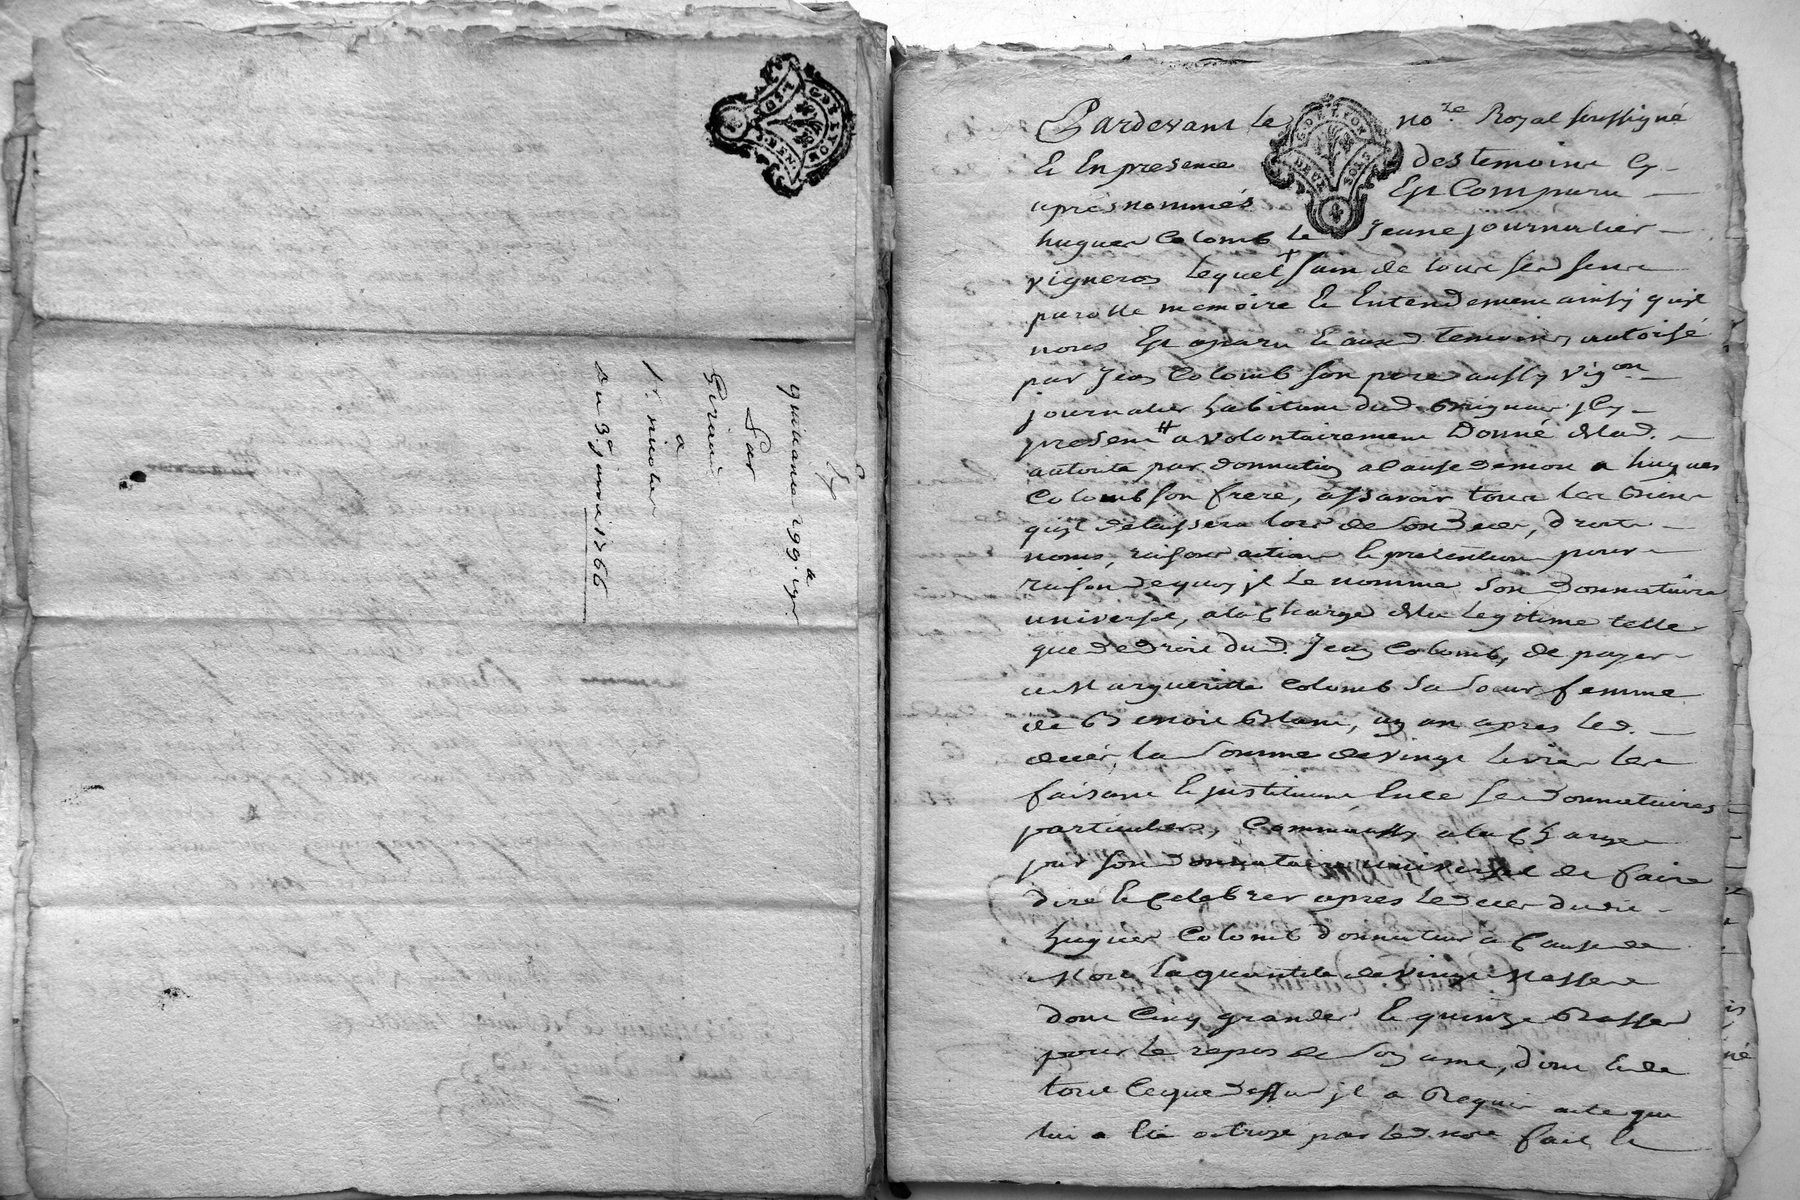 G. DE LYON
quittance 199.#
Par
Giraud
a
Sr. nicolas
Du 3e. juin 1766
G. DE LYON
DEUX SOLS
Pardevant le no.re Royal soussigné
Et En presence des temoins Cy
aprés nommés Est Comparu
hugues Colomb le Jeune journalier
vigneron lequel sain de tous ses sens
parolle memoire Et Entendement ainsy qu'il
nous Est aparu Et auxd. temoins autorisé
par Jean Colomb son pere aussy vig.on
journalier habitant dud.
present a volontairement Donné de lad.
autorité par donnation a cause de mort a hugues
Colomb son frere, assavoir tous les biens
qu'il delaissera lors de son deces, droits
noms, raisons actions Et pretentions pour
raison de quoy il le nomme son donnataire
universel, a la Charge de la legitime telle
que de droit dud. Jean Colomb, de payer
a Marguerite Colomb sa soeur femme
de Benoit Blanc, un an apres led.
deces, la somme de vingt livres les
faisant Et instituant ses donnataires
particuliers, Comm' aussy a la Charge
par son donnataire universel de faire
dire Et Celebrer apres le deces dudit
hugues Colomb donnateur a Cause de
Mort la quantité de vingt Messes
dont Cinq grandes Et quinze Basses
pour le repos de son ame, dont Et de
tout Ceque dessus il a Requis acte que
lui a Eté octroyé par led. no.re fait Et